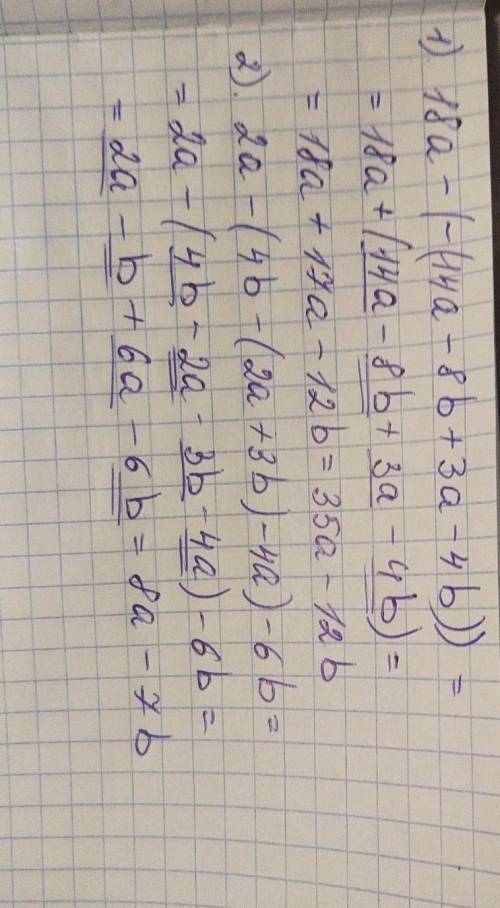 1). 18a - (-(14a - 8b + 3a - 4b)) =
= 18a + (14a - 8b + 3a - 4b) =
= 18a + 17a - 12b = 35a - 12b
2). 2a - (4b - (2a + 3b) - 4a) - 6b =
= 2a - (4b - 2a - 3b - 4a) - 6b =
= 2a - b + 6a - 6b = 8a - 7b